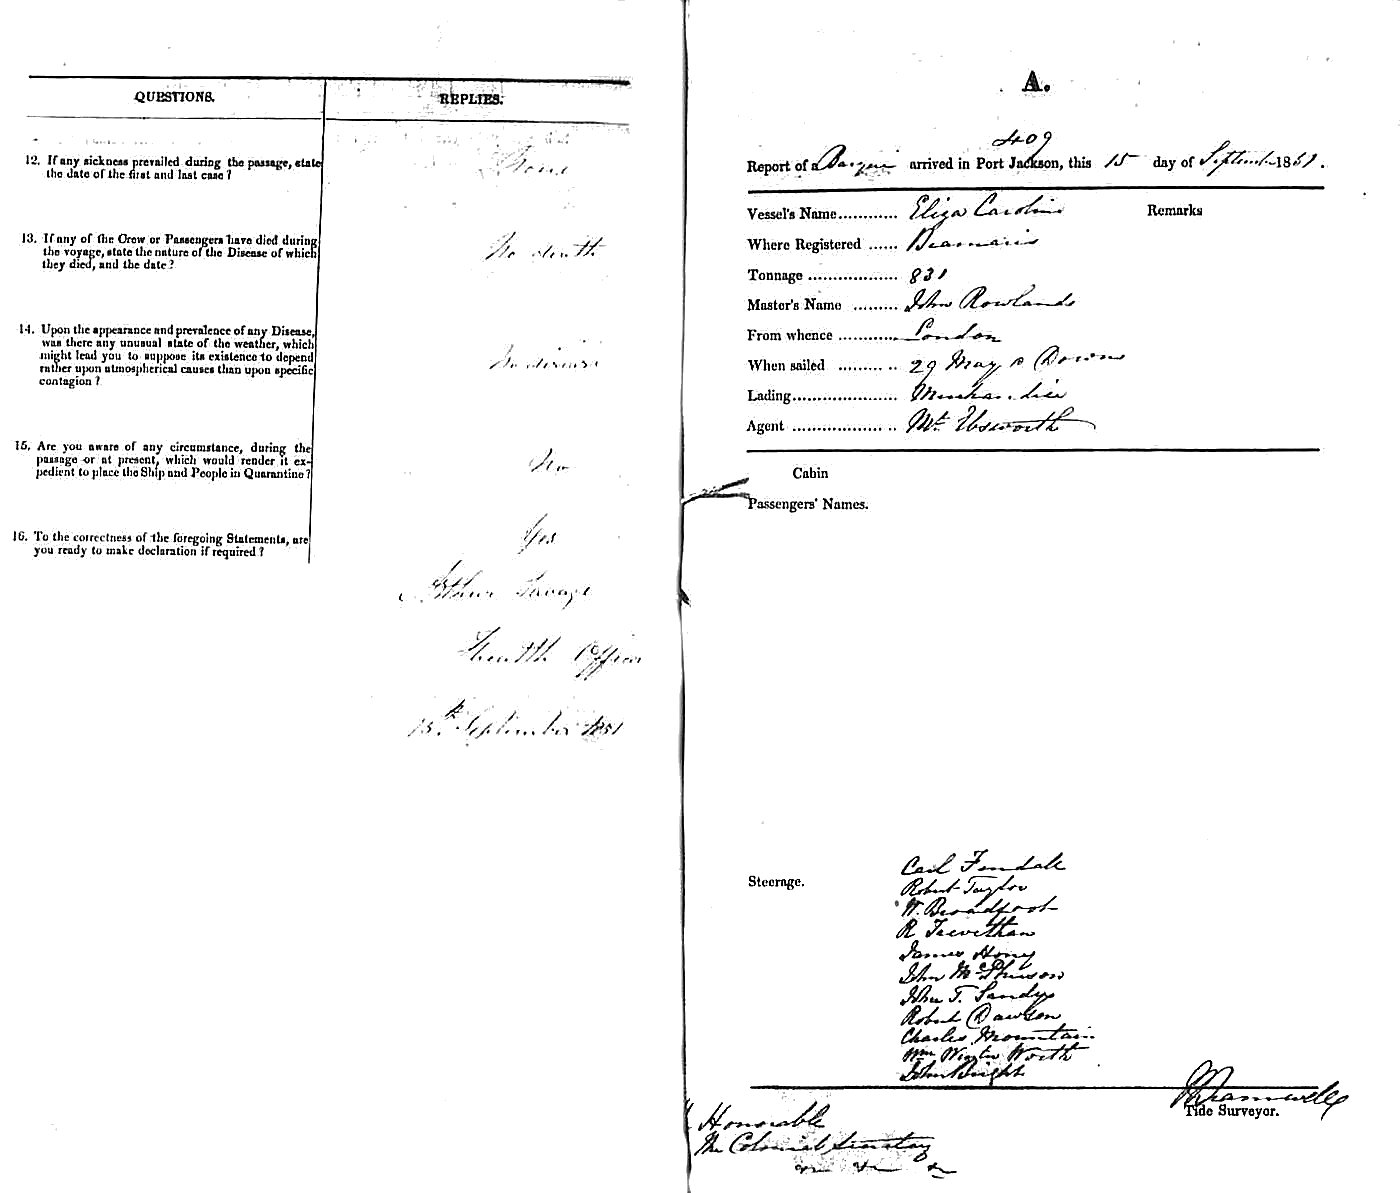 QUESTIONS.
REPLIES.
12. If any sickness prevailed during the passage, state
the date of the first and last case?
None
13. If any of the Crew or Passengers have died during
the voyage, state the nature of the Disease of which
they died, and the date?
No death
14. Upon the appearance and prevalence of any Disease,
was there any unusual state of the weather, which
might lead you to suppose its existence to depend
rather upon atmospherical causes than upon specific
contagion?
No disease
15. Are you aware of any circumstance, during the
passage or at present, which would render it ex-
pedient to place the Ship and People in Quarantine?
No
16. To the correctness of the foregoing Statements, are
you ready to make declaration if required?
Yes
Arthur Savage
Health Officer
15th September 1851
A.
409
Report of a Barque arrived in Port Jackson, this 15 day of September 1851.
Vessel's Name............ Eliza Caroline
Remarks
Where Registered ...... Beaumaris
Tonnage .................. 831
Master's Name ......... John Rowlands
From whence ............ London
When sailed ......... .. 29 May Downs
Lading..................... Merchandise
Agent .................. .. Mr. Ebsworth
Cabin
Passengers' Names.
Steerage.
Carl
Robert Taylor
W. Broadfoot
R Trevethan
James Hony
John McPherson
John T. Sandys
Robert Dawson
Charles Mountain
Wm Worth
John Bright
Bramwell
Tide Surveyor.
Honorable
The Colonial Secretary